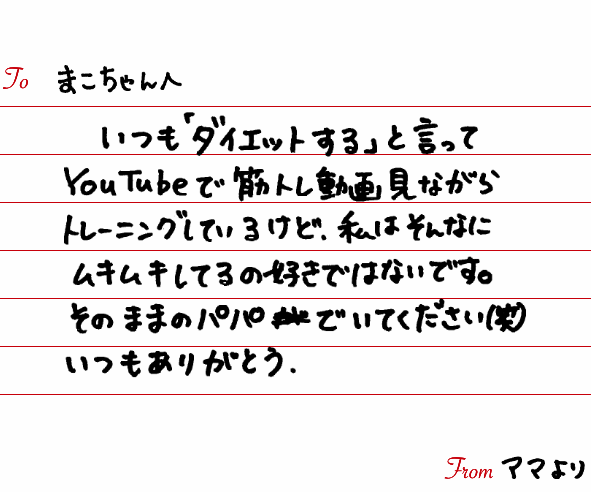 To まこちゃんへ
いつも「ダイエットする」と言って
YouTubeで筋トレ動画見ながら
トレーニングしているけど、私はそんなに
ムキムキしてるの好きではないです。
そのままのパパでいてください(笑)
いつもありがとう.
From ママより